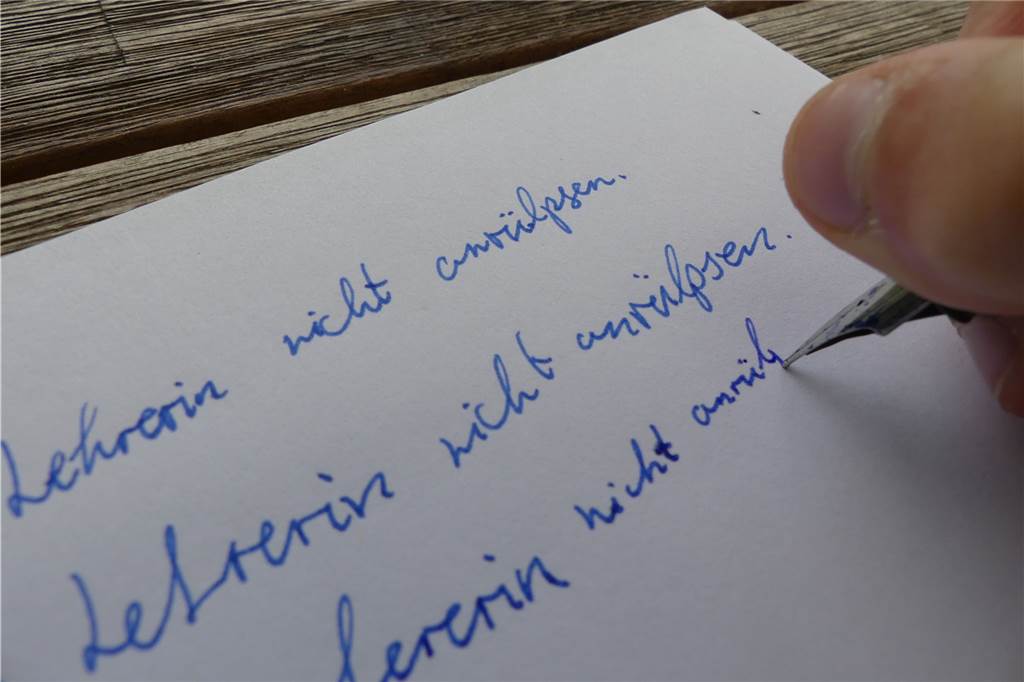 Lehrerin nicht anrülpsen.
Lehrerin nicht anrülpsen.
Lererin nicht anrül